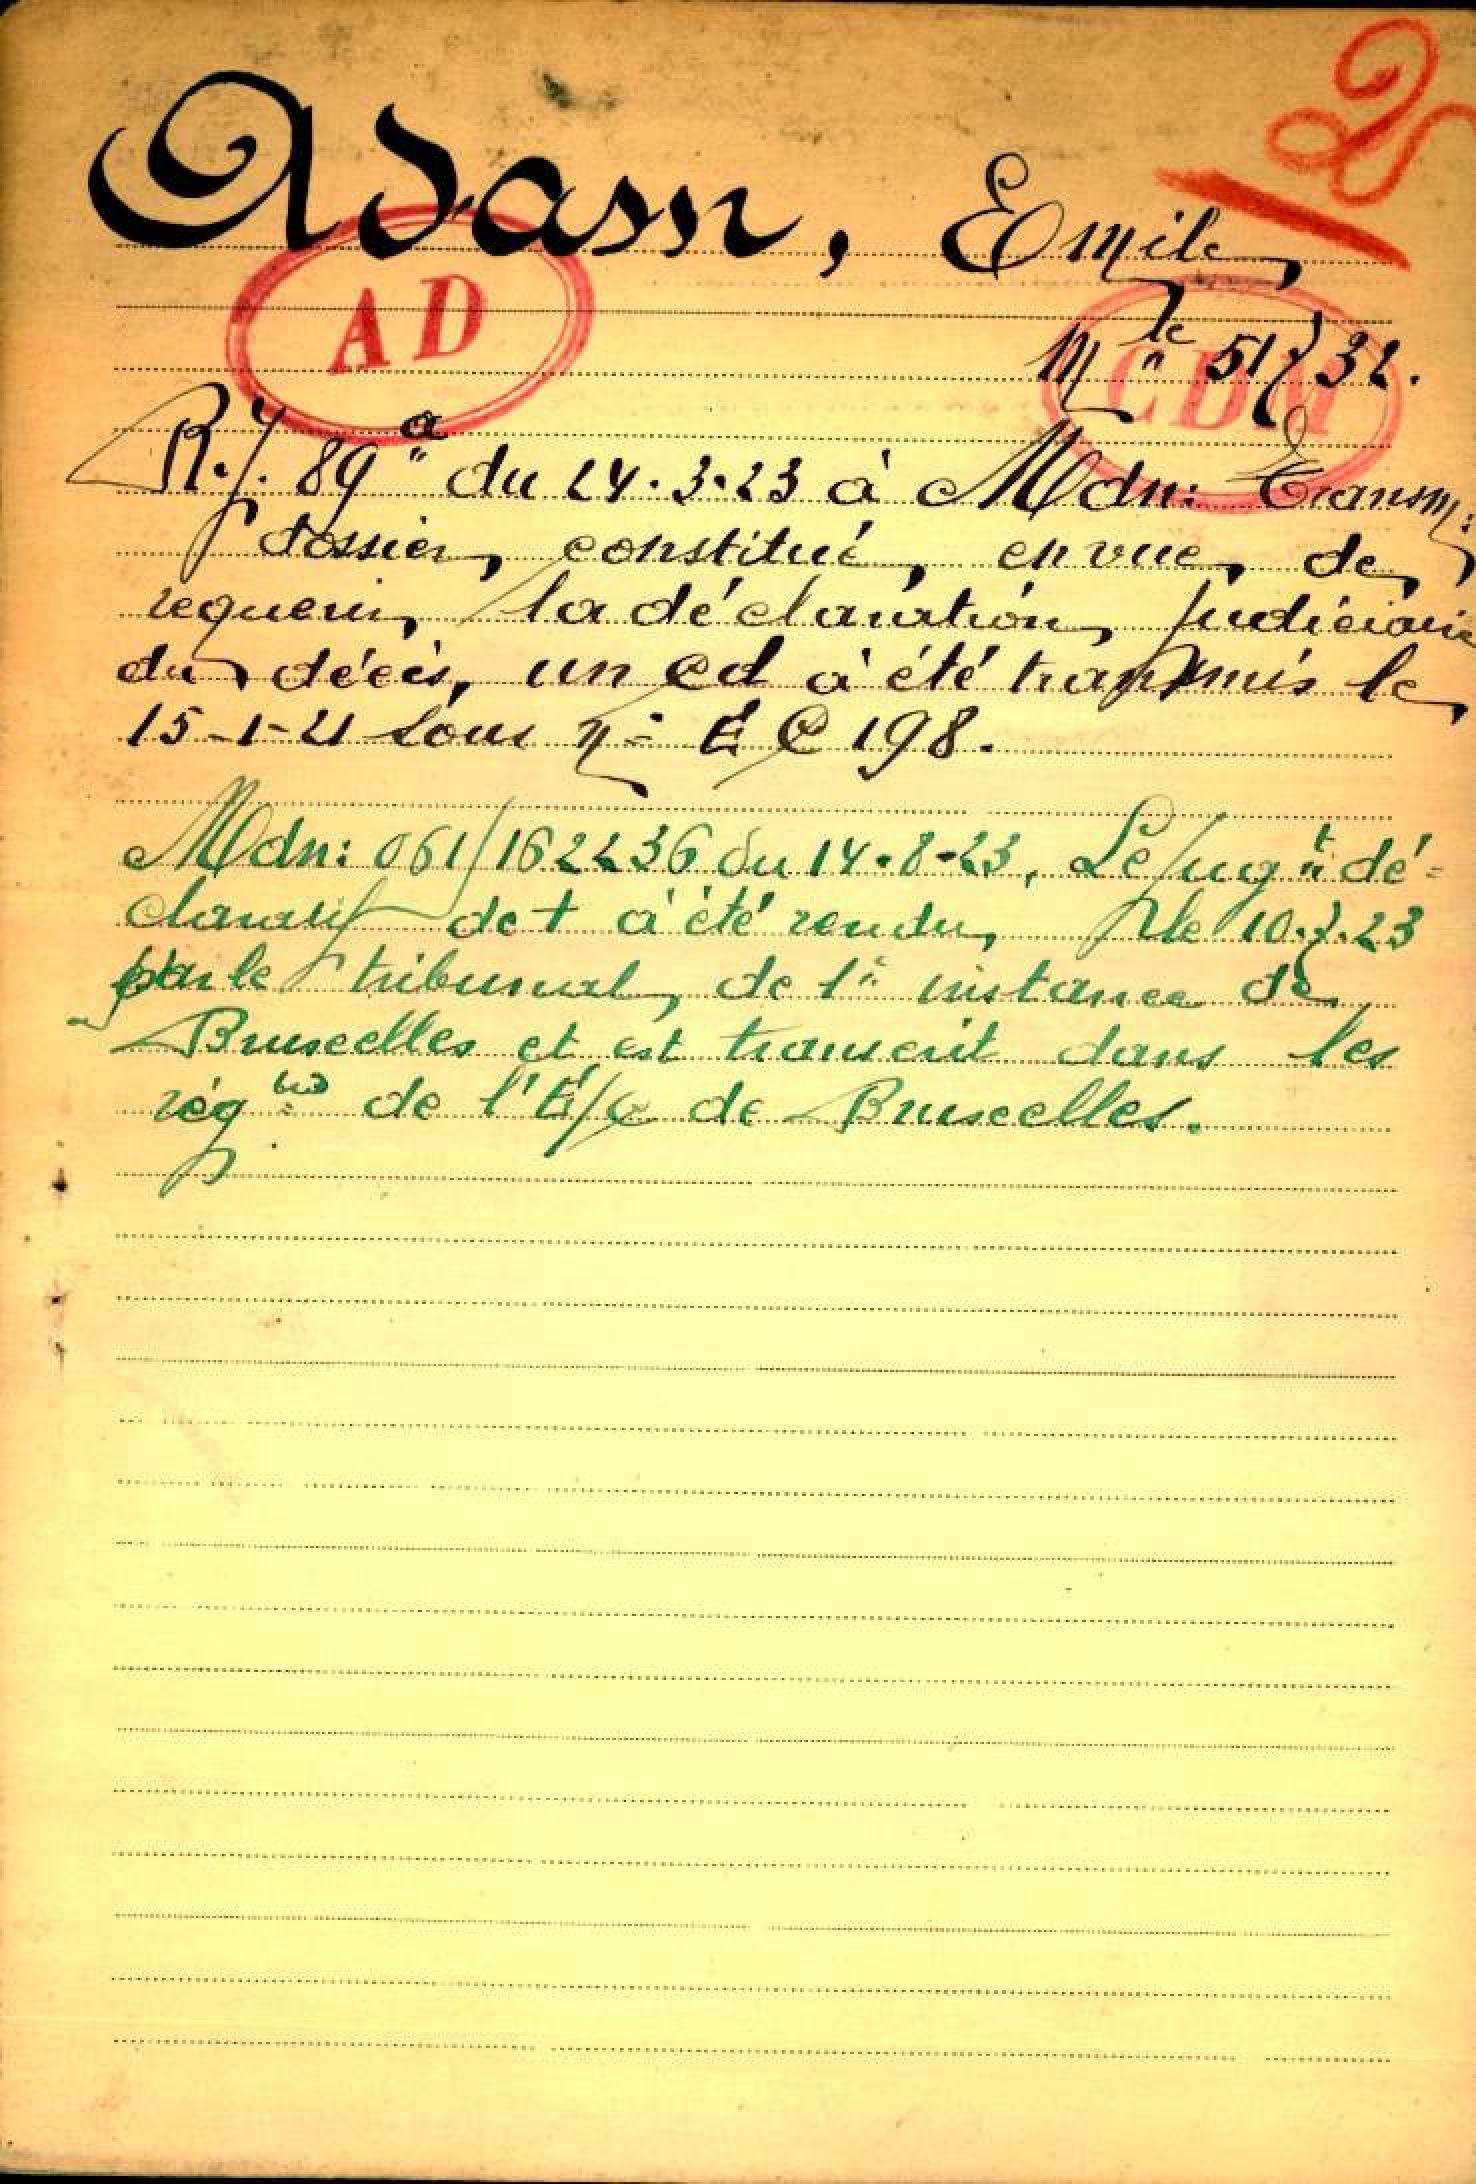 Adam, Emile
AD
CDM
Mle 51732.
R.J. 89a du 24.3.23 à Mdn: Transm:
dossier constitué, en vue de
requérir la déclaration judiciaire
du décès, un cd à été transmis le
15-1-21 sous n: E C 198.
Mdn: 061/162236 du 14.8.23. Le jugt dé-
claratif de + à été rendu le 10.7.23
par le tribunal de 1e instance de
Bruxelles et est transcrit dans les
régtres de l'E/C de Bruxelles.